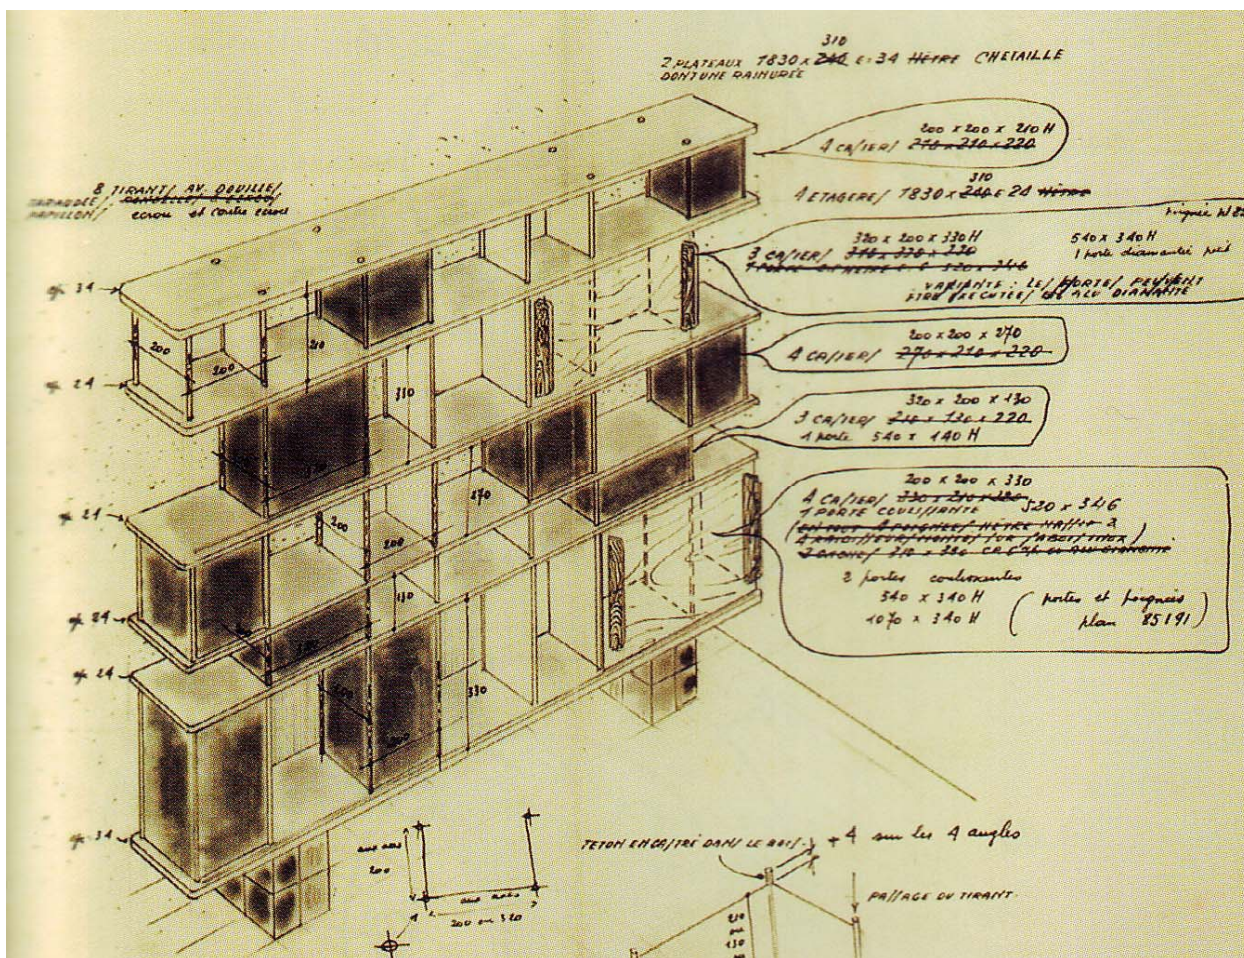 310
2 PLATEAUX 1830 x 240 E. 34 HÊTRE CHETAILLE
DONT UNE RAINURÉE
200 x 200 x 210 H
4 CASIERS 210 x 210 x 220
310
4 ETAGERES 1830 x 240 E 24 HÊTRE
8 TIRANTS AV. DOUILLES
TARAUDÉES,
PAPILLONS écrou et contre écrou
320 x 200 x 330 H
3 CASIERS
540 x 340 H
1 porte diamantée
VARIANTE : LES PORTES PEUVENT
ETRE EXECUTEES EN ALU DIAMANTÉ
200 x 200 x 270
4 CASIERS 270 x 210 x 220
320 x 200 x 130
3 CASIERS 210 x 130 x 220
1 porte 540 x 140 H
200 x 200 x 330
4 CASIERS
1 PORTE COULISSANTE 520 x 346
2 portes coulissantes
540 x 340 H
1070 x 340 H
(portes et poignées
plan 85191)
ep. 34
ep. 24
ep. 24
ep. 24
ep. 24
ep. 34
200
200
210
330
200
200
270
130
330
aux axes
200
aux axes
200 ou 320
TETON ENCASTRÉ DANS LE BOIS.
+ 4 sur les 4 angles
PASSAGE DU TIRANT.
210
ou
130